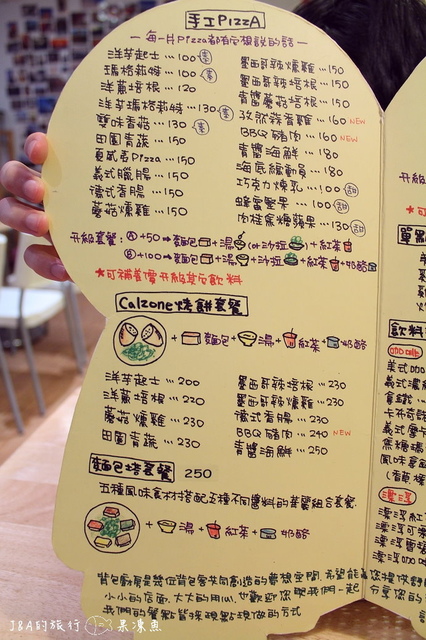 手工PizzA
一每一片Pizza都有它想說的話一
洋芋起士…100 素
瑪格莉特…100 素
洋蔥培根…120
洋芋瑪格莉特…130 素
雙味香菇…130 素
田園青蔬…150
夏威夷Pizza…150
義式臘腸…150
德式香腸…150
蘑菇燻雞…150
墨西哥辣燻雞…150
墨西哥辣培根…150
青醬蘑菇培根…150
孜然辣香雞…160 NEW
BBQ豬肉…160 NEW
青醬海鮮…180
海底總動員…180
巧克力煉乳…100 甜
蜂蜜堅果…100 甜
肉桂焦糖蘋果…130 甜
升級套餐：Ⓐ+50→麵包+湯(or沙拉+紅茶
Ⓑ+100→麵包+湯+沙拉+紅茶+奶酪
*可補差價升級其它飲料
Calzone烤餅套餐
+麵包+湯+紅茶+奶酪
洋芋起士…200
洋蔥培根…220
蘑菇燻雞…230
田園青蔬…230
墨西哥辣培根…230
墨西哥辣燻雞…230
德式香腸…230
BBQ豬肉…240 NEW
青醬海鮮…250
麵包塔套餐 250
五種風味食材搭配五種不同醬料的套餐組合套餐.
+湯+紅茶+奶酪
麵包廚房是幾位背包客共同創造的夢想空間,希望能為您提供
小小的店面,大大的用心,也歡迎您跟我們一起分享您的
我們的餐點皆採現點現做的方式
單點
飲料
美式
義式
拿鐵
卡布奇
義式摩卡
焦糖瑪
風味拿
(香草
漂浮
漂浮紅
漂浮可
漂浮
J&A的旅行 果凍魚